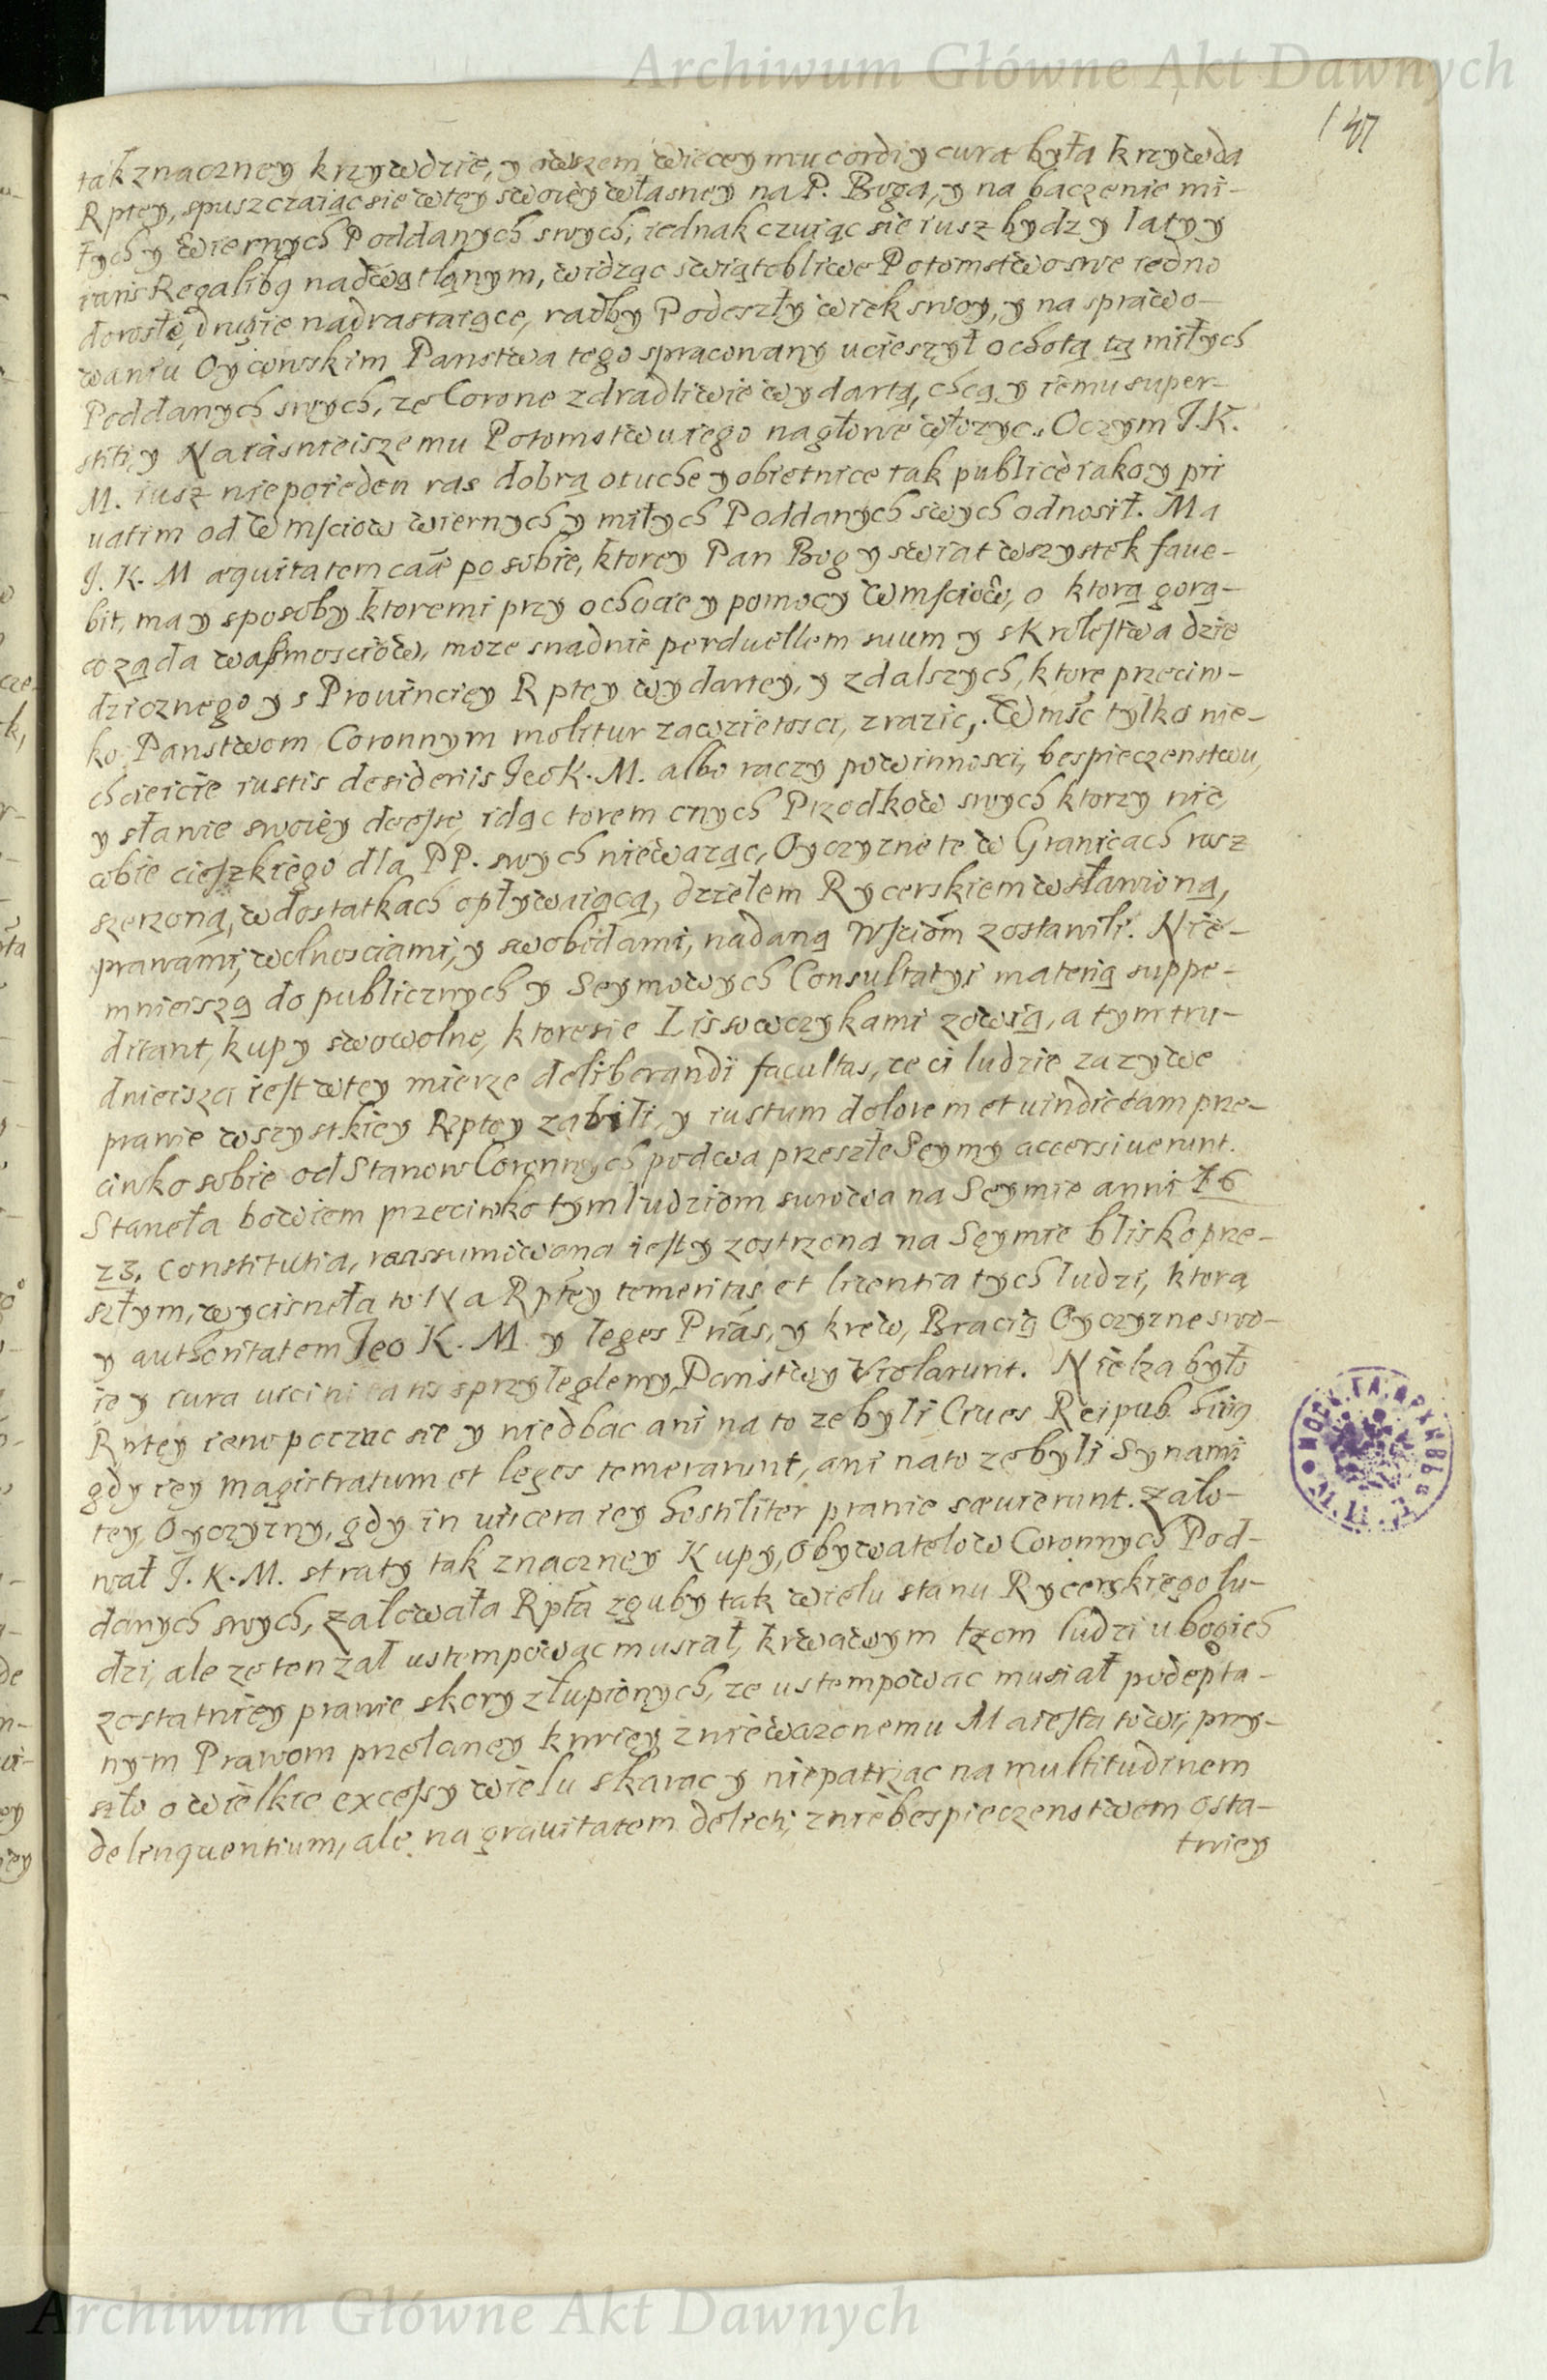 Archiwum Główne Akt Dawnych
147
tak znaczney krzywdzie, y owszem wiecey mu cordi y cura była krzywda
Rptey, spuszczaiąc sie w tey swoiey własney na P. Boga, y na baczenie mi-
łych y wiernych Poddanych swych, iednak czuiąc sie iusz bydz y laty y
curis Regalibq nadwątląnym, widząc swiątobliwe Potomstwo swe iedno
dorosłe, drugie nadrastaiące, radby Podeszły wiek swoy, y na sprawo-
waniu Oycowskim Panstwa tego spracowany ucieszył ochotą tą miłych
Poddanych swych, ze Corone zdradliwie wydartą, chcą y iemu super-
stiti, y Naiasnieiszemu Potomstwu iego na głowe włozyc. O czym J. K.
M. iusz nie poieden ras dobrą otuche y obietnice tak publice iako y pri
uatim od Wmsciow wiernych y miłych Poddanych swych odnosił. Ma
J. K. M æquitatem caâ po sobie, ktorey Pan Bog y swiat wszystek faue-
bit, ma y sposoby ktoremi przy ochocie y pomocy Wmsciow, o ktorą gorą-
co ząda waszmosciow, moze snadnie perduellem suum y s Krolestwa dzie
dzicznego y s Prouinciey Rptey wydartey, y z dalszych, ktore przeciw-
ko Panstwom Coronnym molitur zawzietosci, zrazic, Wmsc tylko nie-
chcieicie iustis desideriis Jeo K. M. albo raczy powinnosci, bespieczenstwu,
y sławie swoiey deesse, idąc torem cnych Przodkow swych ktorzy nic
sobie cieszkiego dla PP. swych niewaząc, Oyczyzne te w Granicach rosz
szerzoną, w dostatkach opływaiącą, dziełem Rycerskiem wsławioną,
prawami, wolnosciami, y swobodami, nadaną Wsciom zostawili. Nie-
mnieiszą do publicznych y Seymowych Consultatyi materią suppe-
ditant, kupy swowolne, ktore sie Lissowczykami zowią, a tym tru-
dnieisza iest w tey mierze deliberandi facultas, ze ci ludzie za zywe
prawie wszystkiey Rptey zabili, y iustum dolorem et uindictam prze-
ciwko sobie od Stanow Coronnych po dwa przeszłe Seymy accersiuerunt.
Staneła bowiem przeciwko tym ludziom surowa na Seymie anni 16
23. Constitutia, reassumowana iest y zostrzona na Seymie blisko prze-
szłym, wycisneła to Na Rptey temeritas et licentia tych ludzi, ktora
y authoritatem Jeo K. M. y leges Prias, y krew, Bracią Oyczyzne swo-
ię y iura uicinitatis s przyległemy Panstwy violarunt. Nielza było
Rptey ieno poczuc sie y niedbac ani na to ze byli Ciues Reipub. huiq
gdy iey magistratum et leges temerarunt, ani na to ze byli Synami
tey Oyczyzny, gdy in uiscera iey hostiliter prawie sæuierunt. Zało-
wał J. K. M. straty tak znaczney Kupy, Obywatelow Coronnych Pod-
danych swych, załowała Rpta zguby tak wielu stanu Rycerskiego lu-
dzi, ale ze ten zal ustempowac musiał, krwawym łzom ludzi ubogich
z ostatniey prawie skory złupionych, ze ustempowac musiał podepta-
nym Prawom przelaney krwiey zniewazonemu Maiestatowi, przy-
szło o wielkie excessy wielu skarac y niepatrząc na multitudinem
delinquentium, ale na grauitatem delicti, z niebespieczenstwem osta-
tniey
Archiwum Główne Akt Dawnych